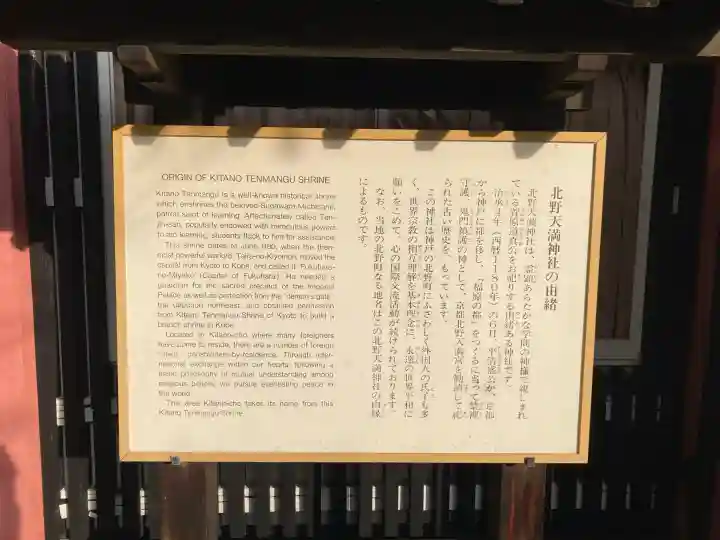 ORIGIN OF KITANO TENMANGU SHRINE
Kitano Tenmangu is a well-known historical shrine
which enshrines the beloved Sugawara-Michizane,
patron saint of learning. Affectionately called Ten-
jin-san, popularly endowed with miraculous powers
to aid learning, students flock to him for assistance.
This shrine dates to June 1180, when the then-
most powerful warlord, Taira-no-Kiyomori, moved the
capital from Kyoto to Kobe, and called it Fukuhara-
no-Miyako (Capital of Fukuhara). He needed a
guardian for the sacred precinct of the Imperial
Palace, as well as protection from the "demon's gate,"
the direction northeast, and obtained permission
from Kitano Tenmangu-Shrine of Kyoto to build a
branch shrine in Kobe.
Located in Kitano-cho where many foreigners
have come to reside, there are a number of foreign
parishioners-by-residence. Through inter-
national exchange within our hearts, following a
basic philosophy of mutual understanding among
religious beliefs, we pursue everlasting peace in
the world.
This area Kitano-cho takes its name from this
Kitano Tenmangu-Shrine.
北野天満神社の由緒
北野天満神社は、霊顕あらたかな学問の神様で親しまれ
ている菅原道真公をお祀りする由緒ある神社です。
治承4年(西暦1180年)の6月、平清盛公が、京都
から神戸に都を移し、「福原の都」をつくるに当って禁裡
守護、鬼門鎮護の神として、京都北野天満宮を勧請して祀
られた古い歴史を、もっています。
この神社は神戸の北野町にふさわしく外国人の氏子も多
く、世界宗教の相互理解を基本理念に、永遠の世界平和に
願いをこめて、心の国際交流活動が続けられております。
なお、当地の北野町なる地名はこの北野天満神社の由縁
によるものです。